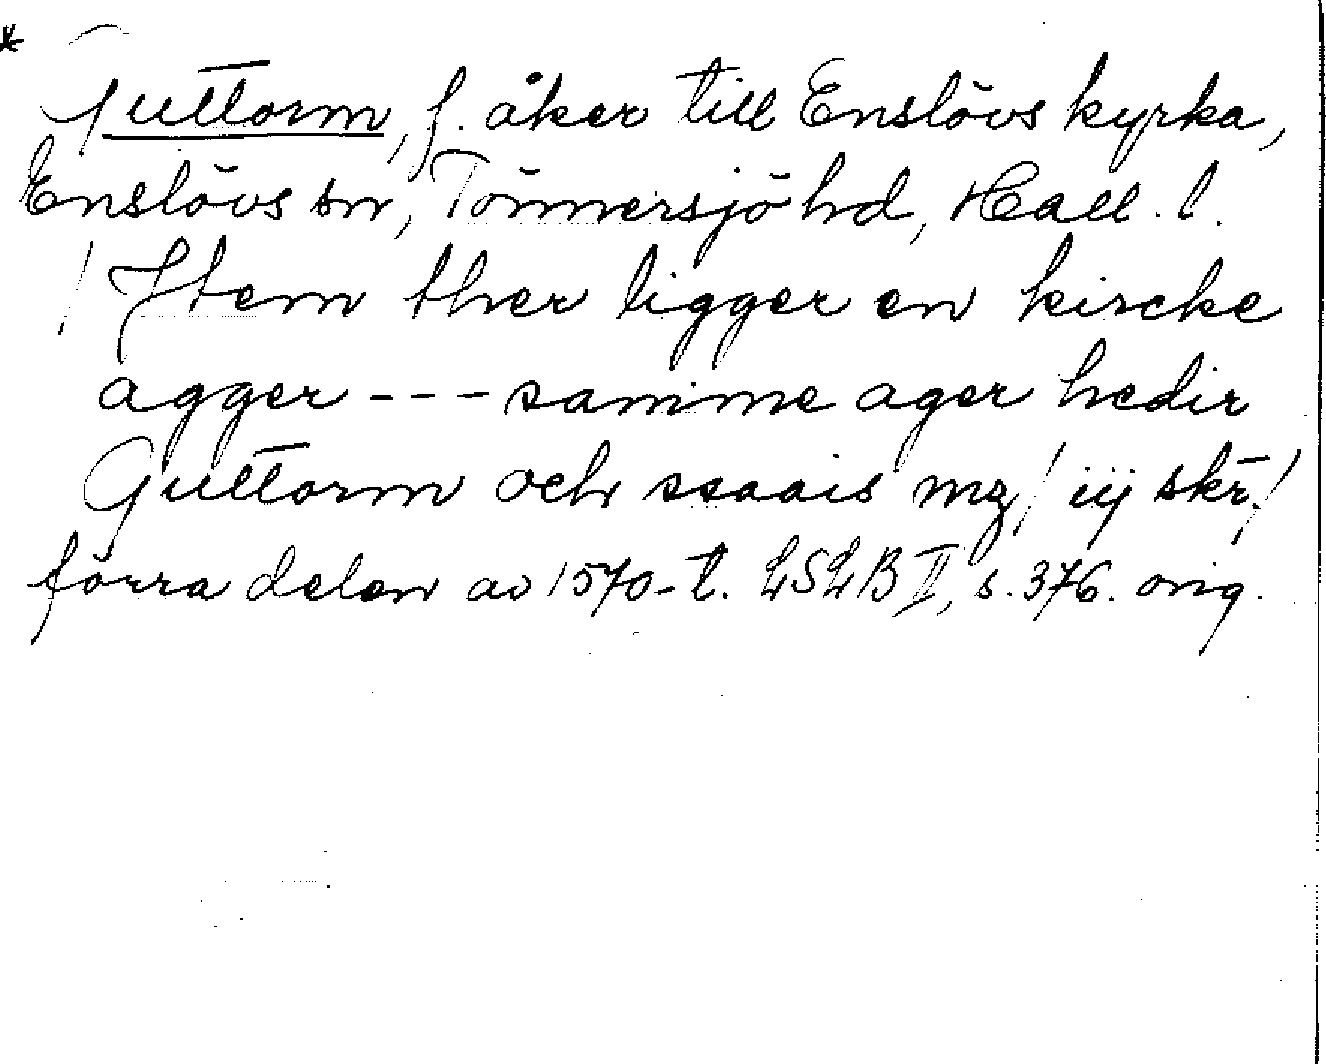 *
Guttorm, f. åker till Enslövs kyrka,
Enslövs sn, Tönnersjö hd, Hall. l.
/ Item ther ligger en kircke
agger --- samme ager hedir
Guttorm och ssaais mz / iij skr̄. /
förra delen av 1570-t. LSLB II, s. 376. orig.